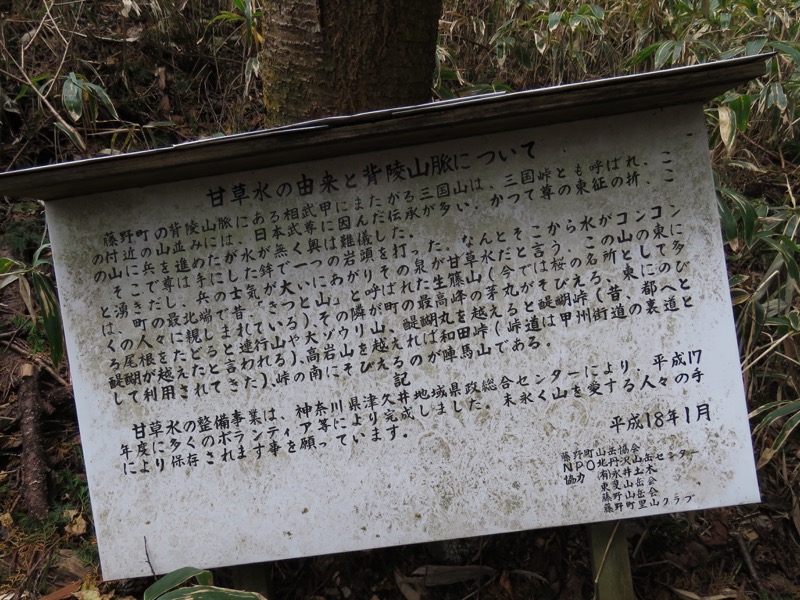 甘草水の由来と背陵山脈について
藤野町の背陵山脈にある相武甲にまたがる三国山は、三国峠とも呼ばれ、こ
の付近の山並みには、日本武尊に因んだ伝承が多い。かつて尊の東征の折、こ
の山に兵を進めたが水が無く興は難儀した。
そこで尊は手にした鉾で一つの岩頭を打った。なんとそこから水がコンコン
と湧きだし、兵の士気が大いにあがりその泉が甘草水だと言う。この山の東に
は、町の最北端で昔「きつと山」と呼ばれた生藤山(今では桜の名所として多
くの人々に親しまれている)その隣が町の最高峰の茅丸がそびえる、東にのび
る尾根をたどると連行山や大ゾウリ山、醍醐丸を越えると醍醐峠(昔、都へと
醍醐が越えたと言われる)、高岩山を越えれば和田峠(峠道は甲州街道の裏道と
して利用されてきた)、峠の南にそびえるのが陣馬山である。
記
甘草水の整備事業は、神奈川県津久井地域県政総合センターにより、平成17
年度に多くのボランティア等により完成しました。末永く山を愛する人々の手
により保存されます事を願っています。
平成18年1月
藤野町山岳協会
NPO北丹沢山岳センター
協力 (有)永井土木
東叟山岳会
藤野山岳会
藤野町里山クラブ